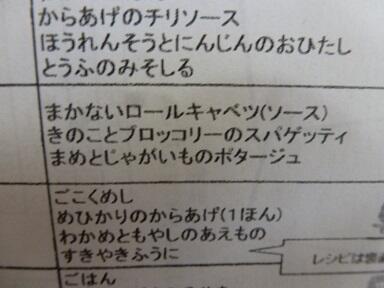 からあげのチリソース
ほうれんそうとにんじんのおひたし
とうふのみそしる
まかないロールキャベツ(ソース)
きのことブロッコリーのスパゲッティ
まめとじゃがいものポタージュ
ごこくめし
めひかりのからあげ(1ほん)
わかめともやしのあえもの
すきやきふうに
レシピは裏面
ごはん